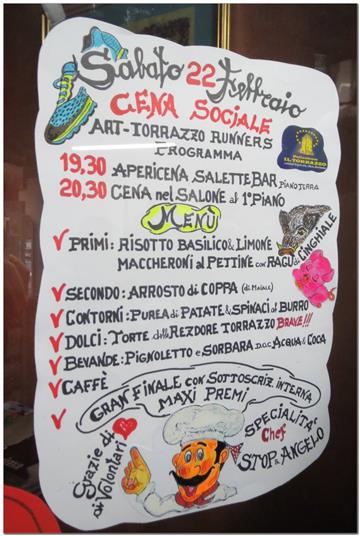 Sabato 22 Febbraio
CENA SOCIALE
ART-TORRAZZO RUNNERS
PROGRAMMA
19,30 APERICENA SALETTE BAR PIANO TERRA
20,30 CENA nel SALONE al 1° PIANO
MENÙ
PRIMI: RISOTTO BASILICO & LIMONE
MACCHERONI al PETTINE con RAGÙ di CINGHIALE
SECONDO: ARROSTO di COPPA (di MAIALE)
CONTORNI: PUREA di PATATE & SPINACI al BURRO
DOLCI: TORTE delle REZDORE TORRAZZO BRAVE!!!
BEVANDE: PIGNOLETTO e SORBARA D.O.C ACQUA & COCA
CAFFÈ
GRAN FINALE con SOTTOSCRIZ. INTERNA
MAXI PREMI
Grazie di
di Volontari
SPECIALITÀ
Chef
STOP & ANGELO
IL TORRAZZO